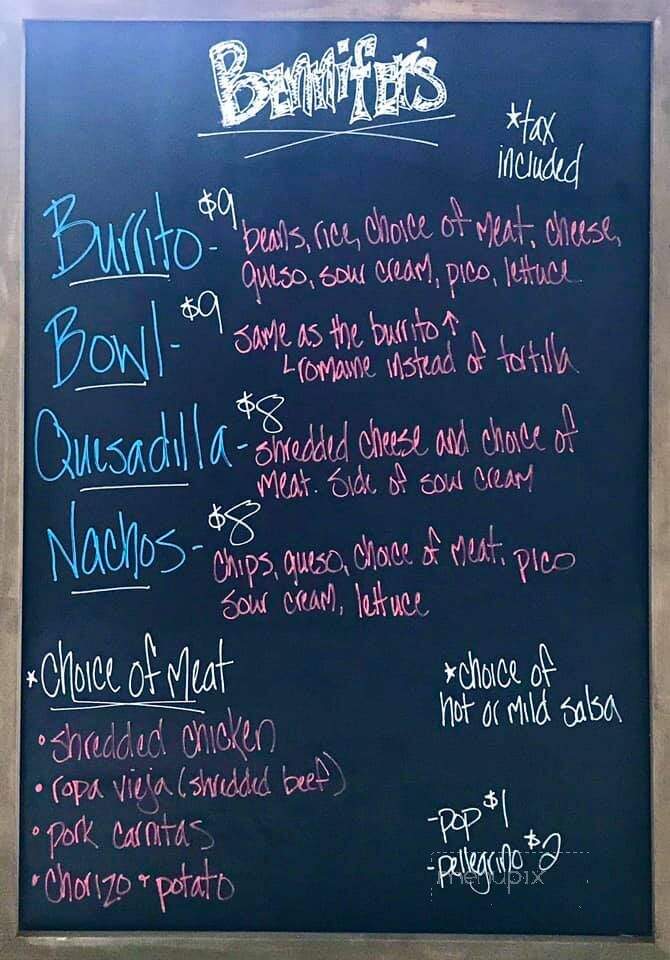 Bennifer's
*tax
included
Burrito- $9 beans, rice, choice of meat, cheese,
queso, sour cream, pico, lettuce
Bowl- $9 same as the burrito ↑
romaine instead of tortilla
Quesadilla- $8 shredded cheese and choice of
meat. Side of sour cream
Nachos- $8 chips, queso, choice of meat, pico
sour cream, lettuce
*Choice of Meat
• shredded chicken
• ropa vieja (shredded beef)
• pork carnitas
• Chorizo + potato
*choice of
hot or mild salsa
-pop $1
-pellegrino $2
menupix